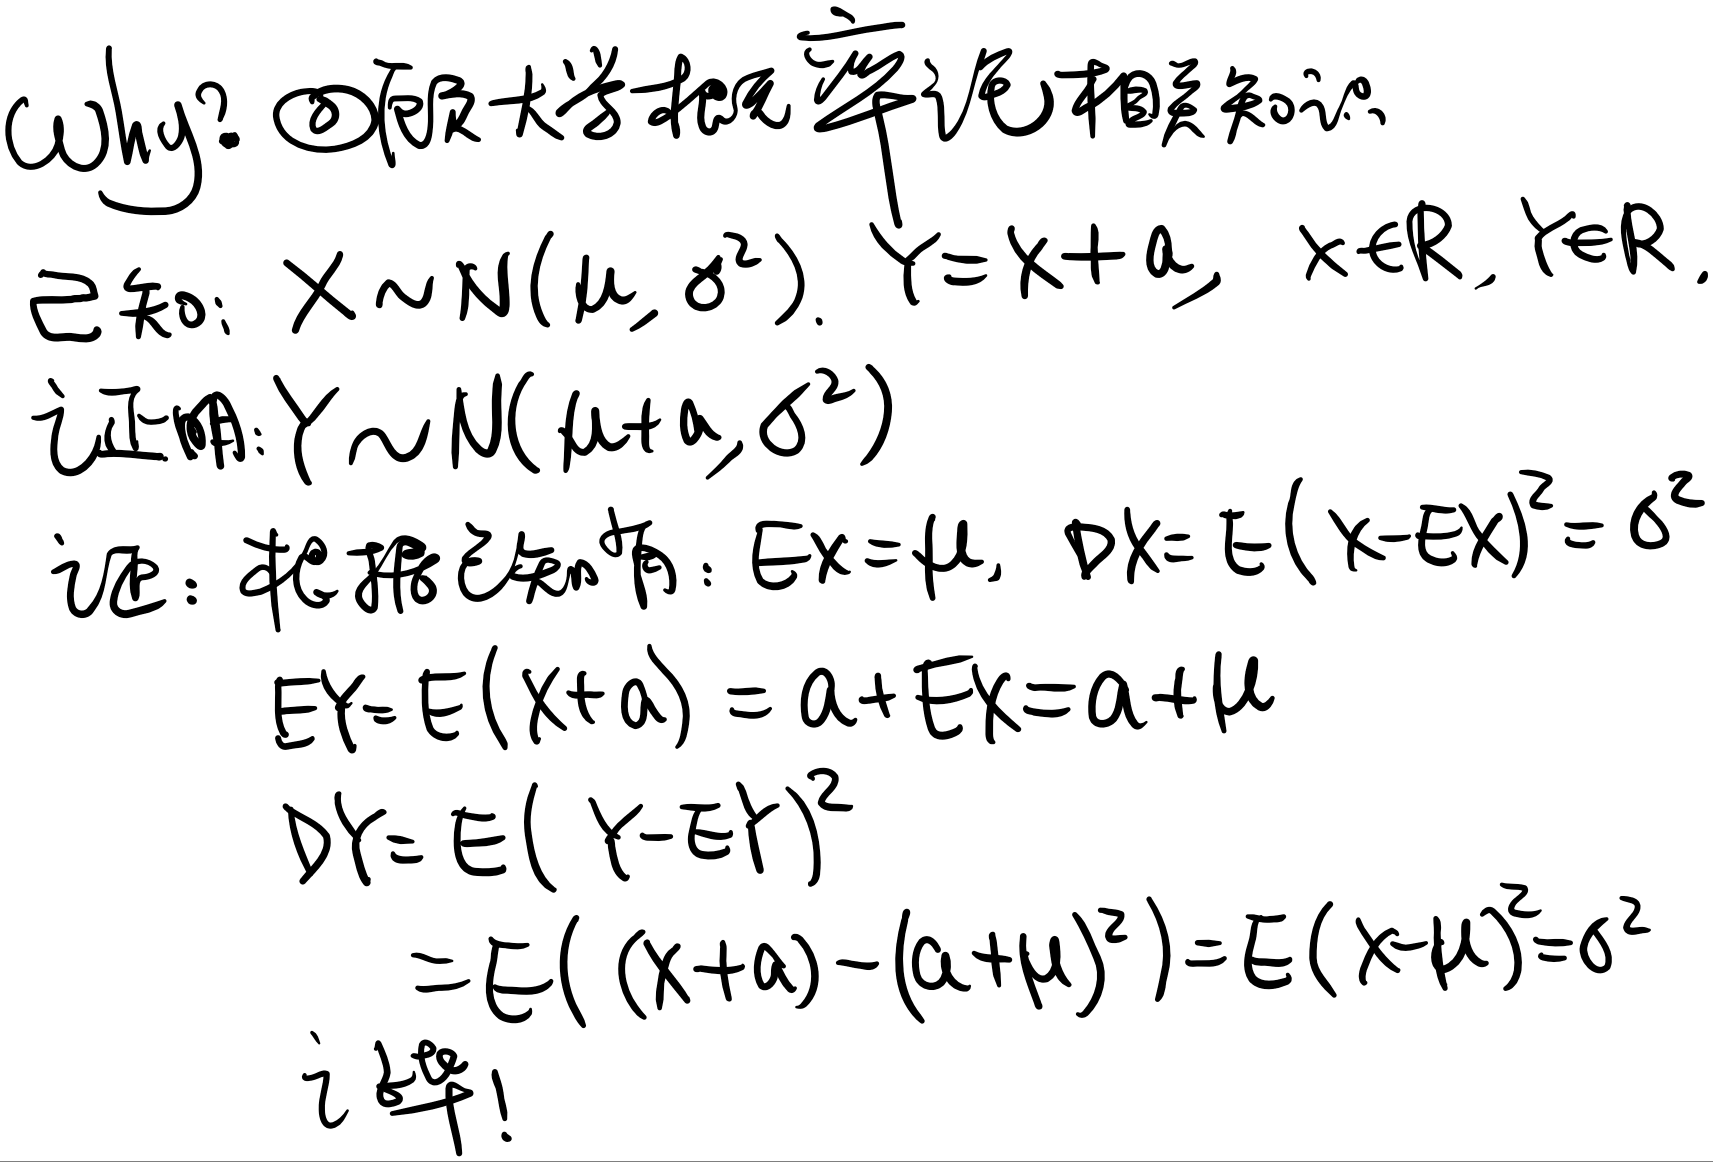 Why? ①回顾大学概率论相关知识
已知: X~N(μ, σ²). Y=X+a, X∈R, Y∈R.
证明: Y~N(μ+a, σ²)
证: 根据已知有: EX=μ, DX=E(X-EX)²=σ²
EY=E(X+a)=a+EX=a+μ
DY=E(Y-EY)²
=E((X+a)-(a+μ)²)=E(X-μ)²=σ²
证毕!